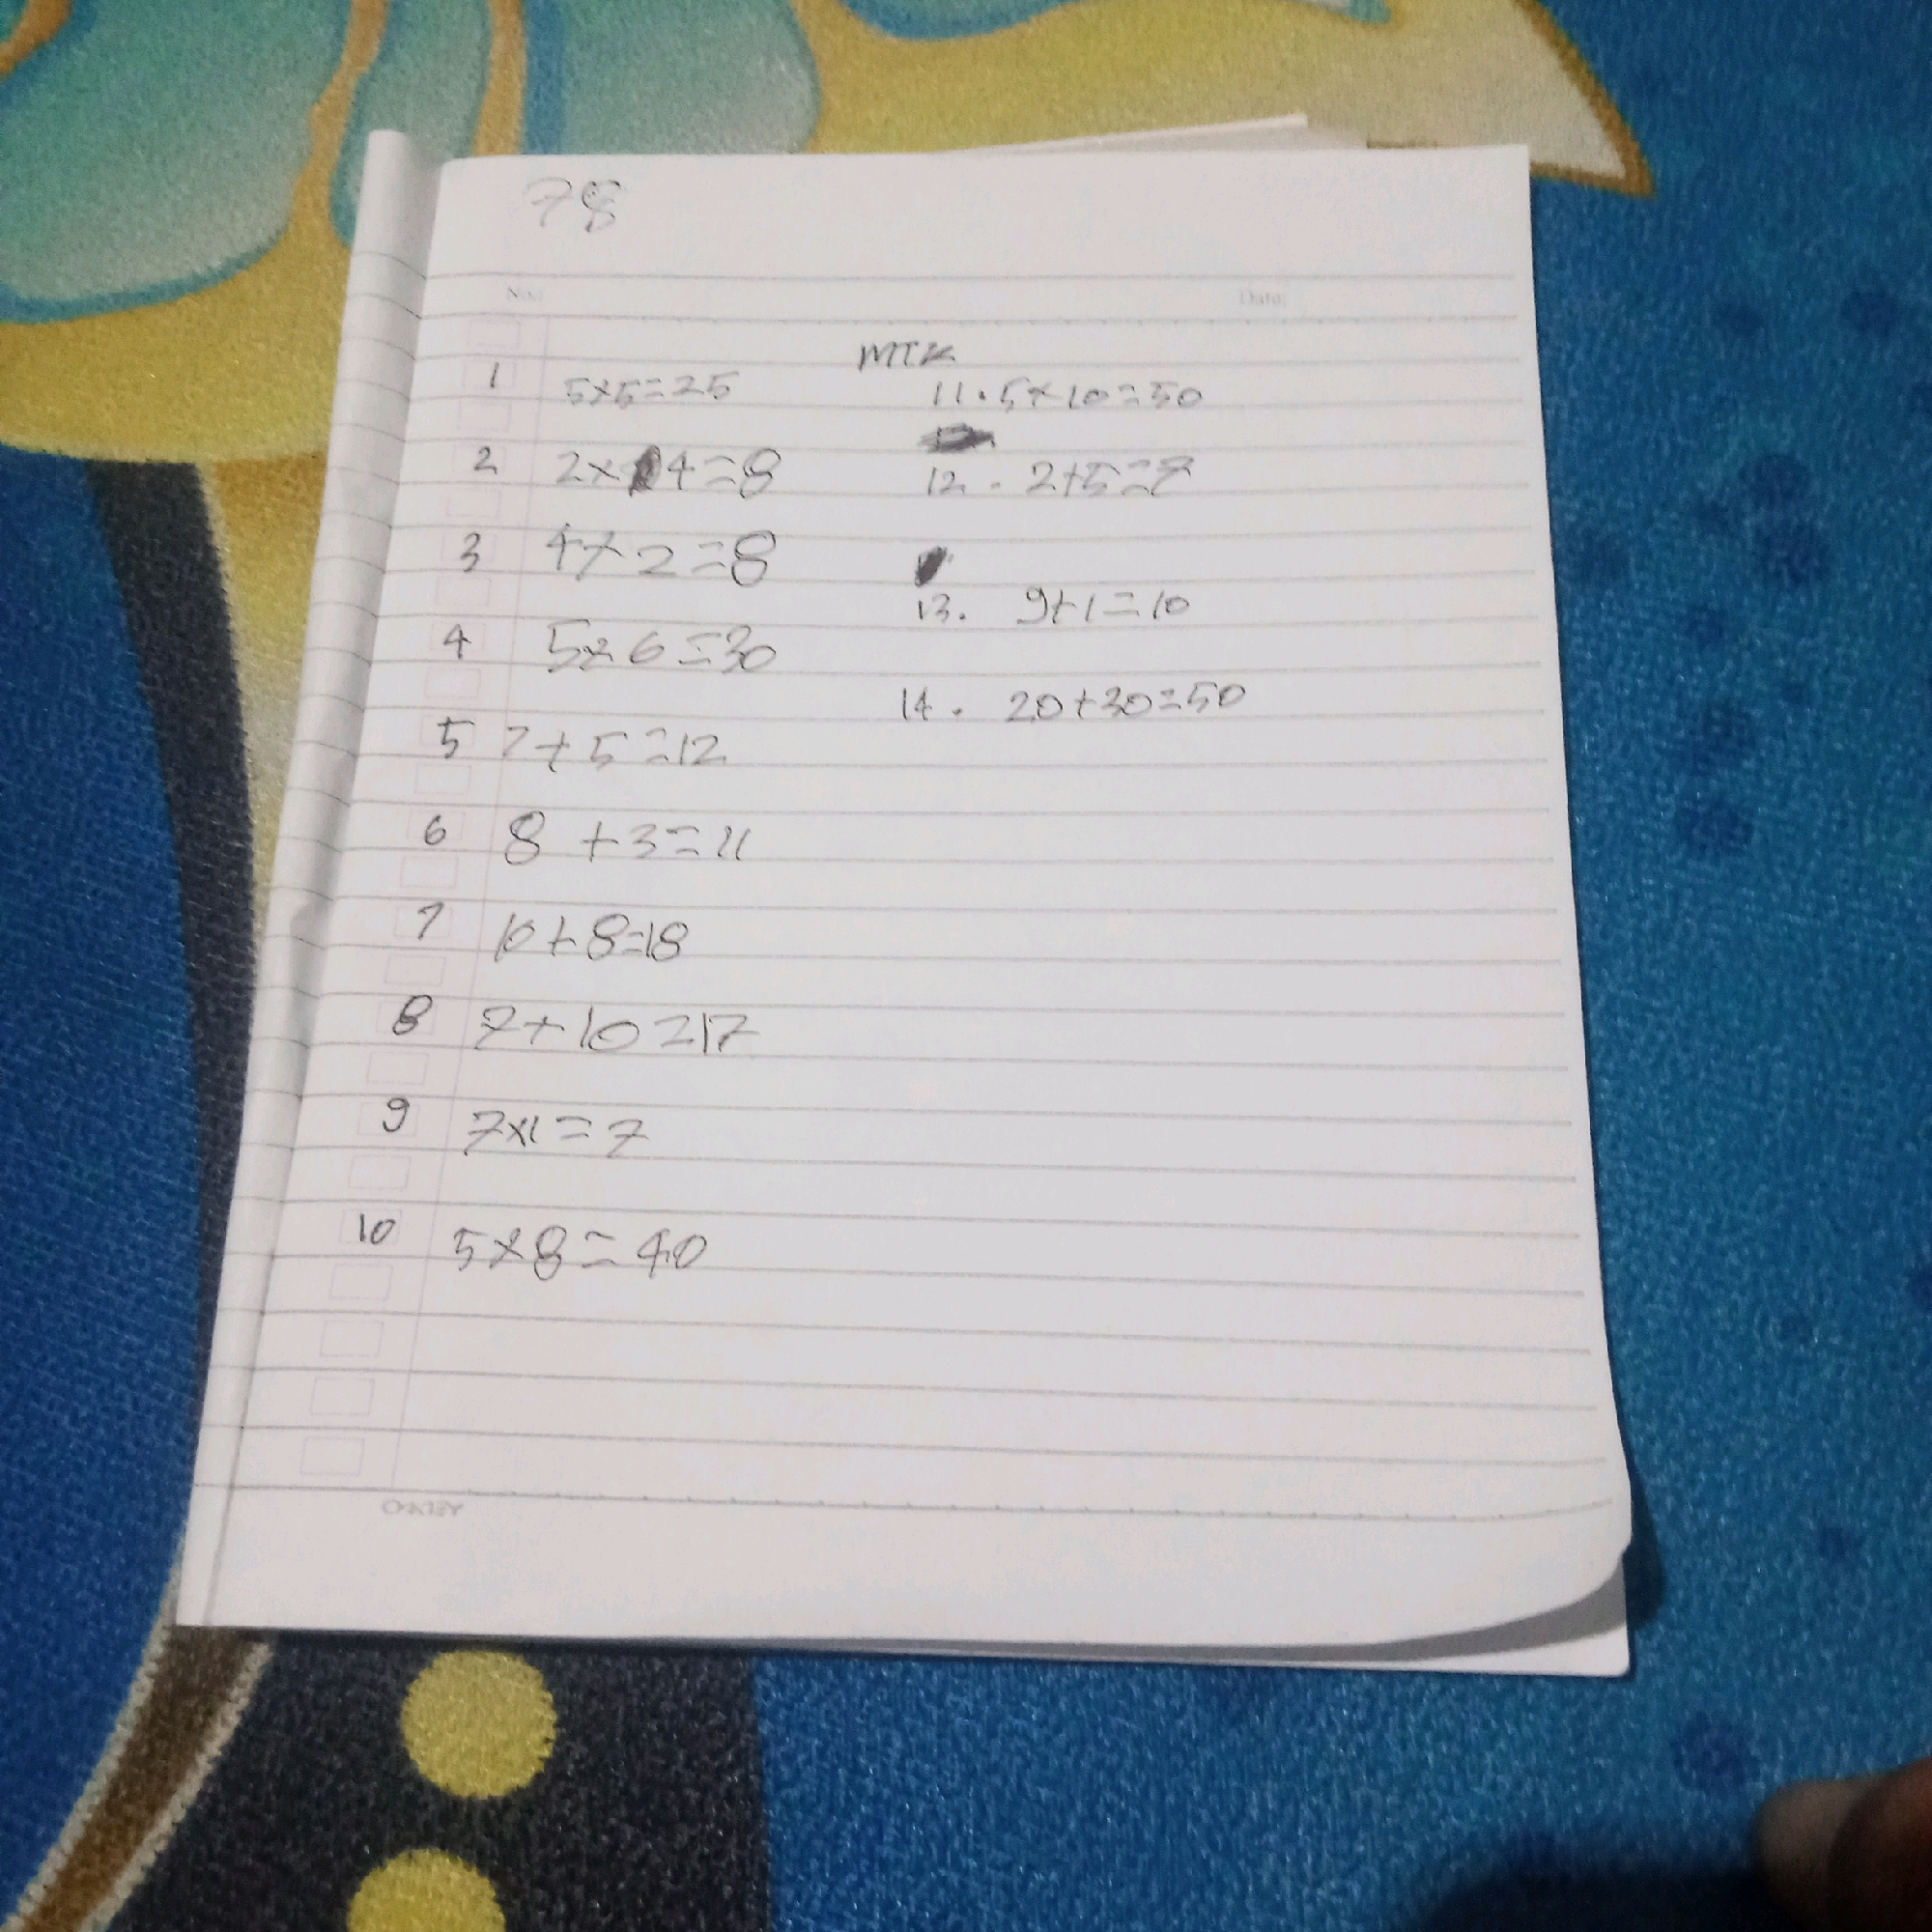 78
No.:
Date:
MTK
1 5x5=25
2 2x4=8
3 4x2=8
4 5x6=30
5 7+5=12
6 8+3=11
7 10+8=18
8 7+10=17
9 7x1=7
10 5x8=40
11. 5x10=50
12. 2+5=7
13. 9+1=10
14. 20+30=50